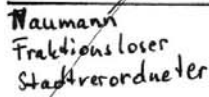 Naumann
Fraktionsloser
Stadtverordneter